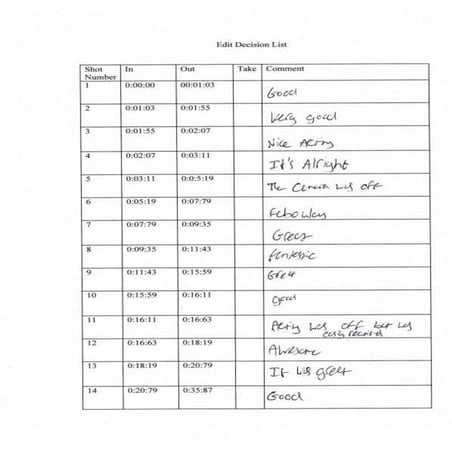 Edit Decision List
Shot Number In Out Take Comment
1 0:00:00 00:01:03 Good
2 0:01:03 0:01:55 Very good
3 0:01:55 0:02:07 Nice Acting
4 0:02:07 0:03:11 It's Alright
5 0:03:11 0:0:5:19 The Camera was off
6 0:05:19 0:07:79
7 0:07:79 0:09:35 Great
8 0:09:35 0:11:43 fantastic
9 0:11:43 0:15:59 Great
10 0:15:59 0:16:11 good
11 0:16:11 0:16:63 Acting was off but was
easily
12 0:16:63 0:18:19 Awesome
13 0:18:19 0:20:79 It was great
14 0:20:79 0:35:87 Good